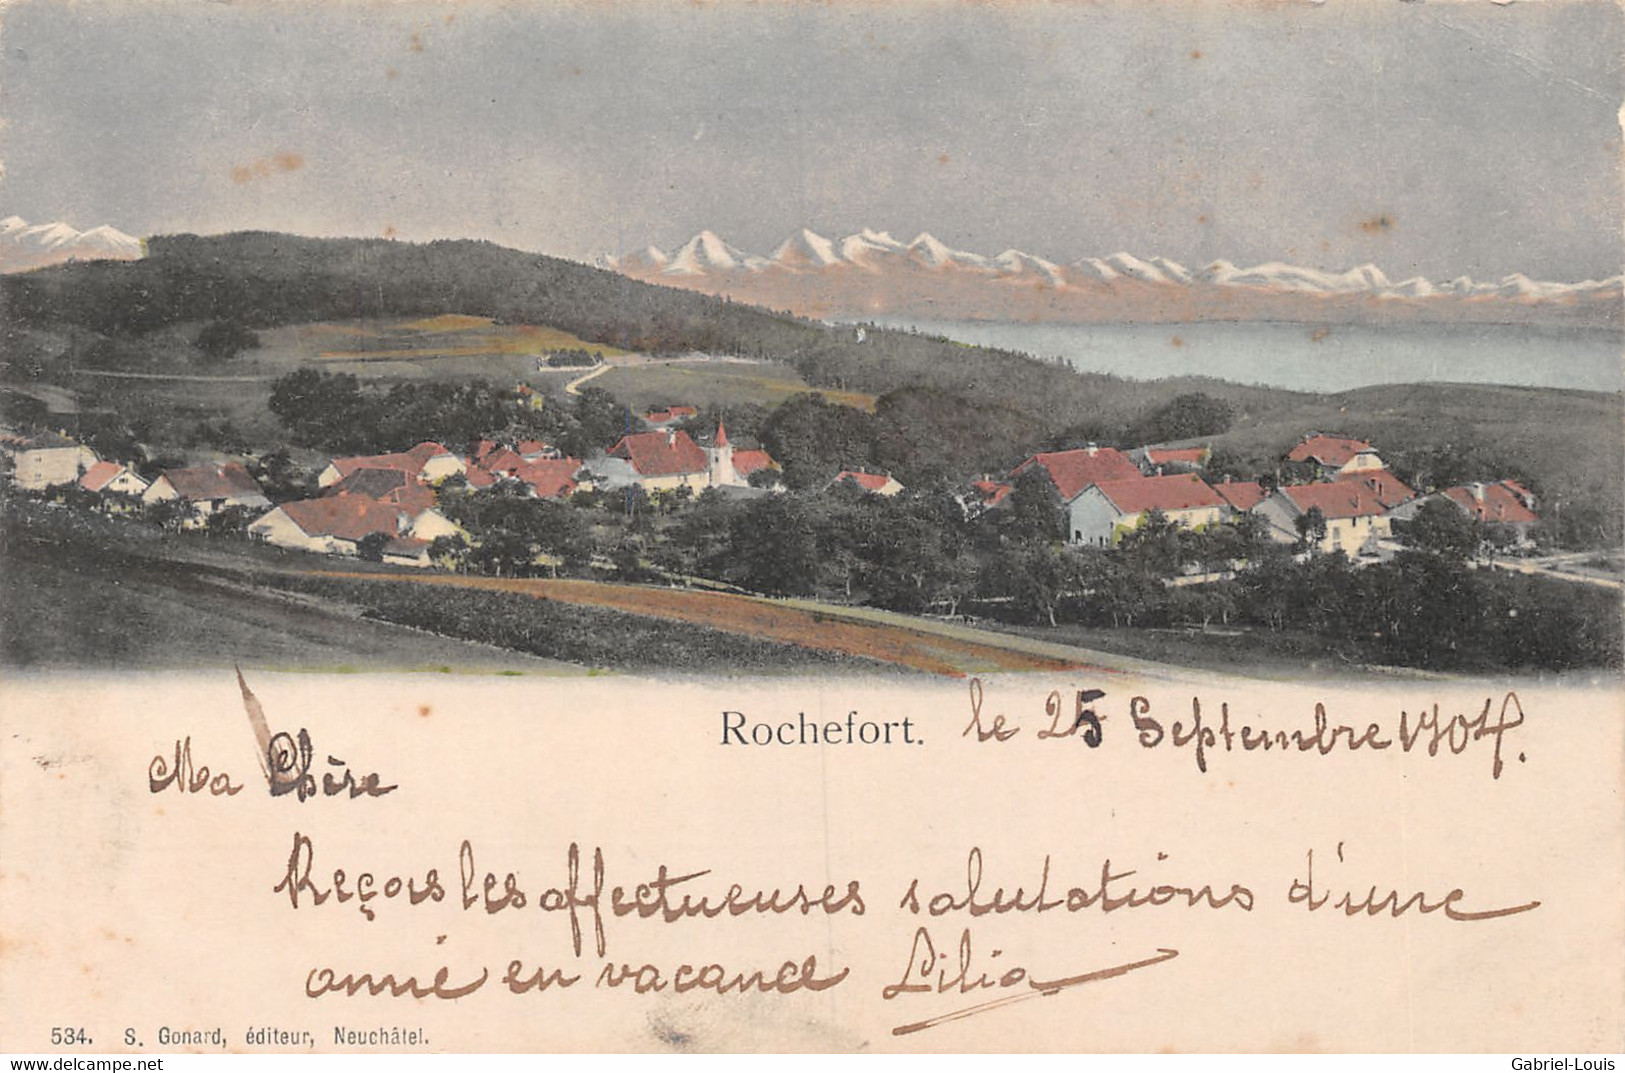 Rochefort. le 25 Septembre 1904.
Ma Chère
Reçois les affectueuses salutations d'une
amie en vacance Lilia
534. S. Gonard, éditeur, Neuchâtel.
www.delcampe.net
Gabriel-Louis